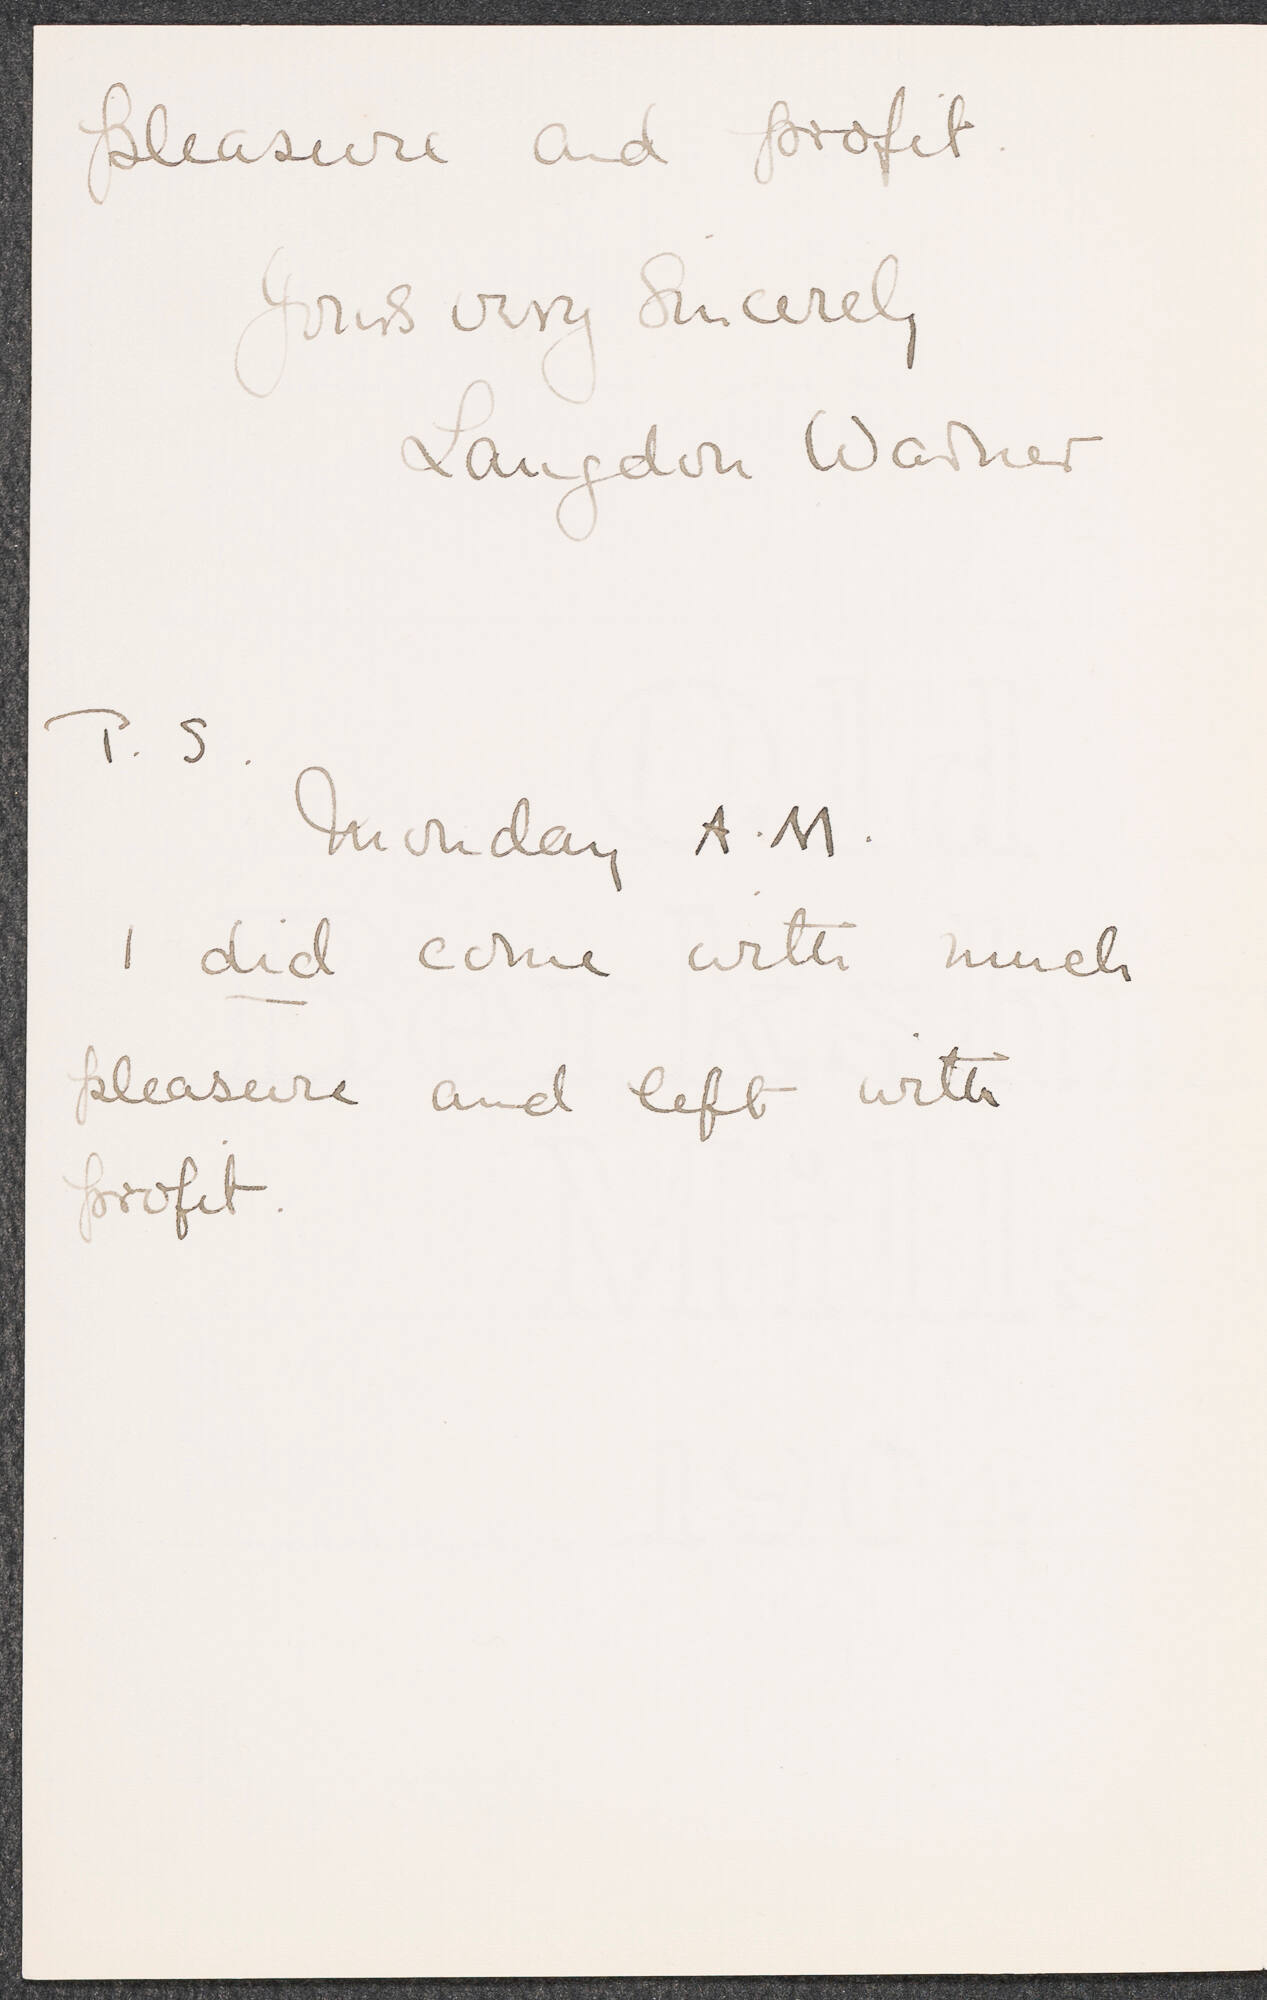 pleasure and profit.
Yours very sincerely
Langdon Warner
P. S.
Monday A.M.
I did come with much
pleasure and left with
profit.